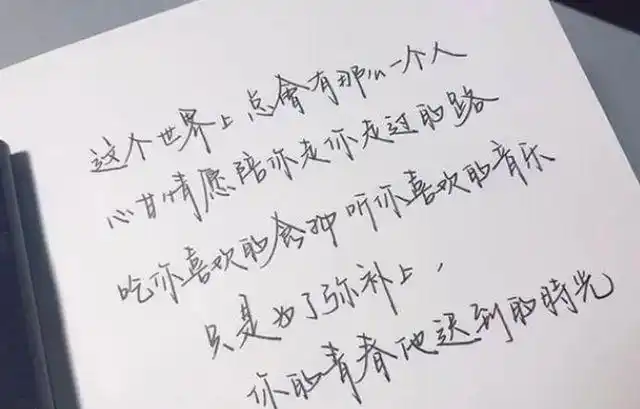 这个世界上总會有那么一个人
心甘情愿陪你走你走过的路
吃你喜欢的食物听你喜欢的音乐
只是为了弥补上，
你的青春他迟到的時光